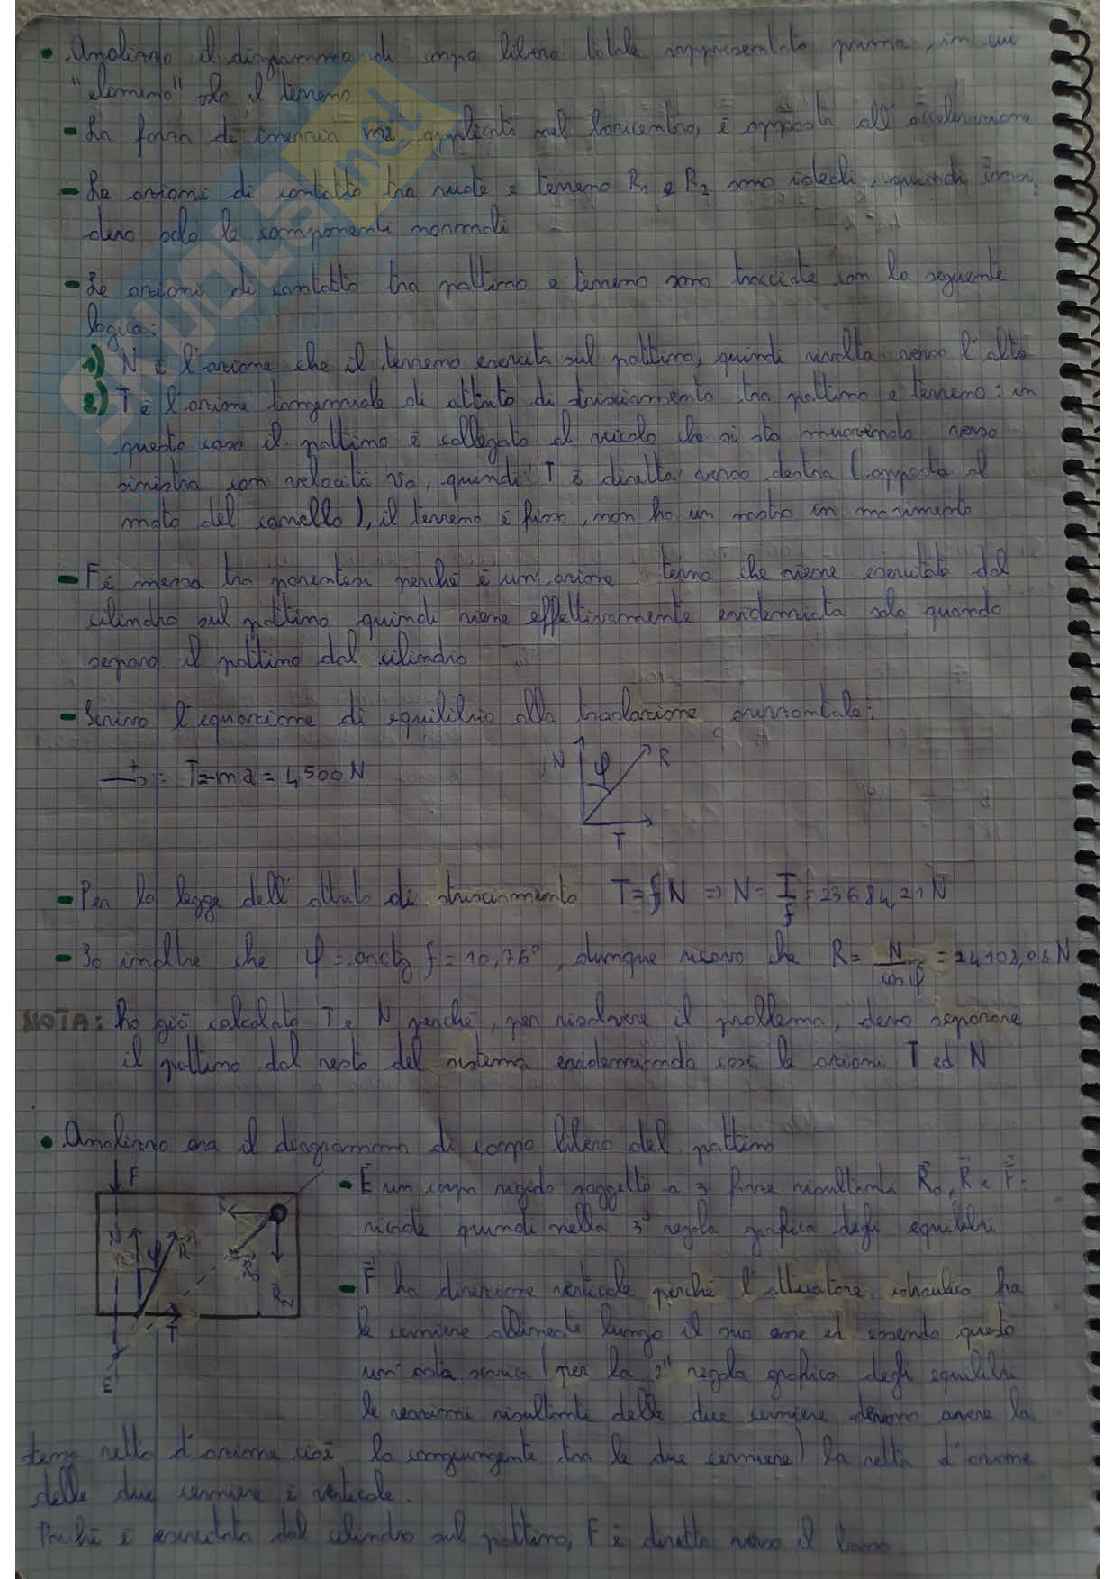 • Analizzo il diagramma di corpo libero totale rappresentato prima, in cui
"elimino" solo il terreno
- La forza di inerzia ma, applicata nel baricentro, è opposta all'accelerazione
- Le azioni di contatto tra ruote e terreno R1 e R2 sono ideali, quindi
solo le componenti normali
- Le azioni di contatto tra pattino e terreno sono tracciate con la seguente
logica:
1) N è l'azione che il terreno esercita sul pattino, quindi rivolta verso l'alto
2) T è l'azione tangenziale di attrito di strisciamento tra pattino e terreno: in
questo caso il pattino è collegato al veicolo che si sta muovendo verso
sinistra con velocità Vo, quindi T è diretta verso destra (opposta al
moto del carrello), il terreno è fisso, non ho un nastro in movimento
- F è messa tra parentesi perché è un'azione interna che viene esercitata dal
cilindro sul pattino quindi viene effettivamente evidenziata solo quando
separo il pattino dal cilindro
- Scrivo l'equazione di equilibrio alla traslazione orizzontale:
+→ : T=ma = 4500 N
N φ R
T
- Per la legge dell'attrito di strisciamento T=fN => N= T/f = 23684,21 N
- So inoltre che φ = arctg f = 10,76°, dunque ricavo che R= N/cosφ = 24108,01 N
NOTA: ho già calcolato T e N perché, per risolvere il problema, devo separare
il pattino dal resto del sistema evidenziando così le azioni T ed N
• Analizzo ora il diagramma di corpo libero del pattino
F
- È un corpo rigido soggetto a 3 forze risultanti Ro, R e F:
ricade quindi nella 3ª regola grafica degli equilibri
N φ R
T
- F ha direzione verticale perché l'attuatore idraulico ha
le cerniere allineate lungo il suo asse ed essendo questo
un'asta scarica (per la 2ª regola grafica degli equilibri
le reazioni risultanti delle due cerniere devono avere la
stessa retta d'azione cioè la congiungente tra le due cerniere) la retta d'azione
delle due cerniere è verticale.
Poiché è esercitata dal cilindro sul pattino, F è diretta verso il basso
SKUOLA.net